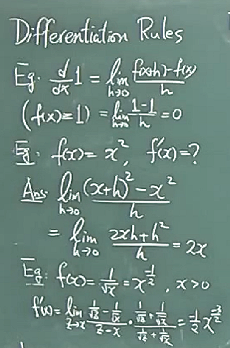 Differentiation Rules
Eg. d/dx 1 = lim_{h→0} (f(x+h)-f(x))/h
(f(x)=1) = lim_{h→0} (1-1)/h = 0
Eg. f(x)=x², f'(x)=?
Ans: lim_{h→0} ((x+h)²-x²)/h
= lim_{h→0} (2xh+h²)/h = 2x
Eg. f(x)=1/√x = x^{-1/2}, x>0
f'(x)= lim_{z→x} (1/√z - 1/√x)/(z-x) · (1/√z + 1/√x)/(1/√z + 1/√x) = -1/2 x^{-3/2}